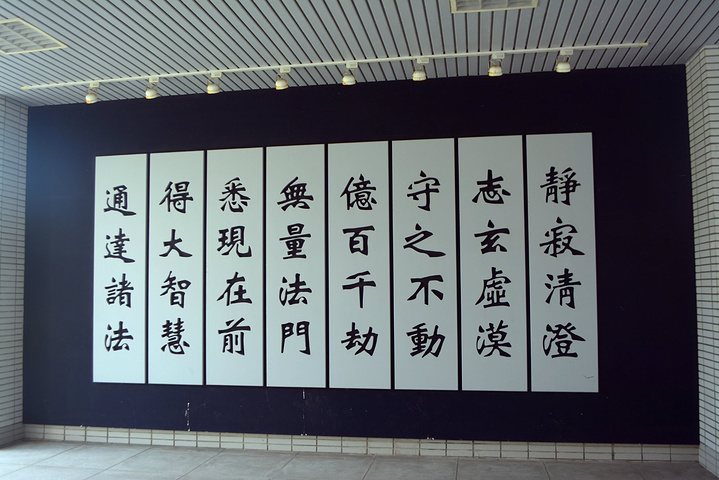 靜寂清澄
志玄虛漠
守之不動
億百千劫
無量法門
悉現在前
得大智慧
通達諸法